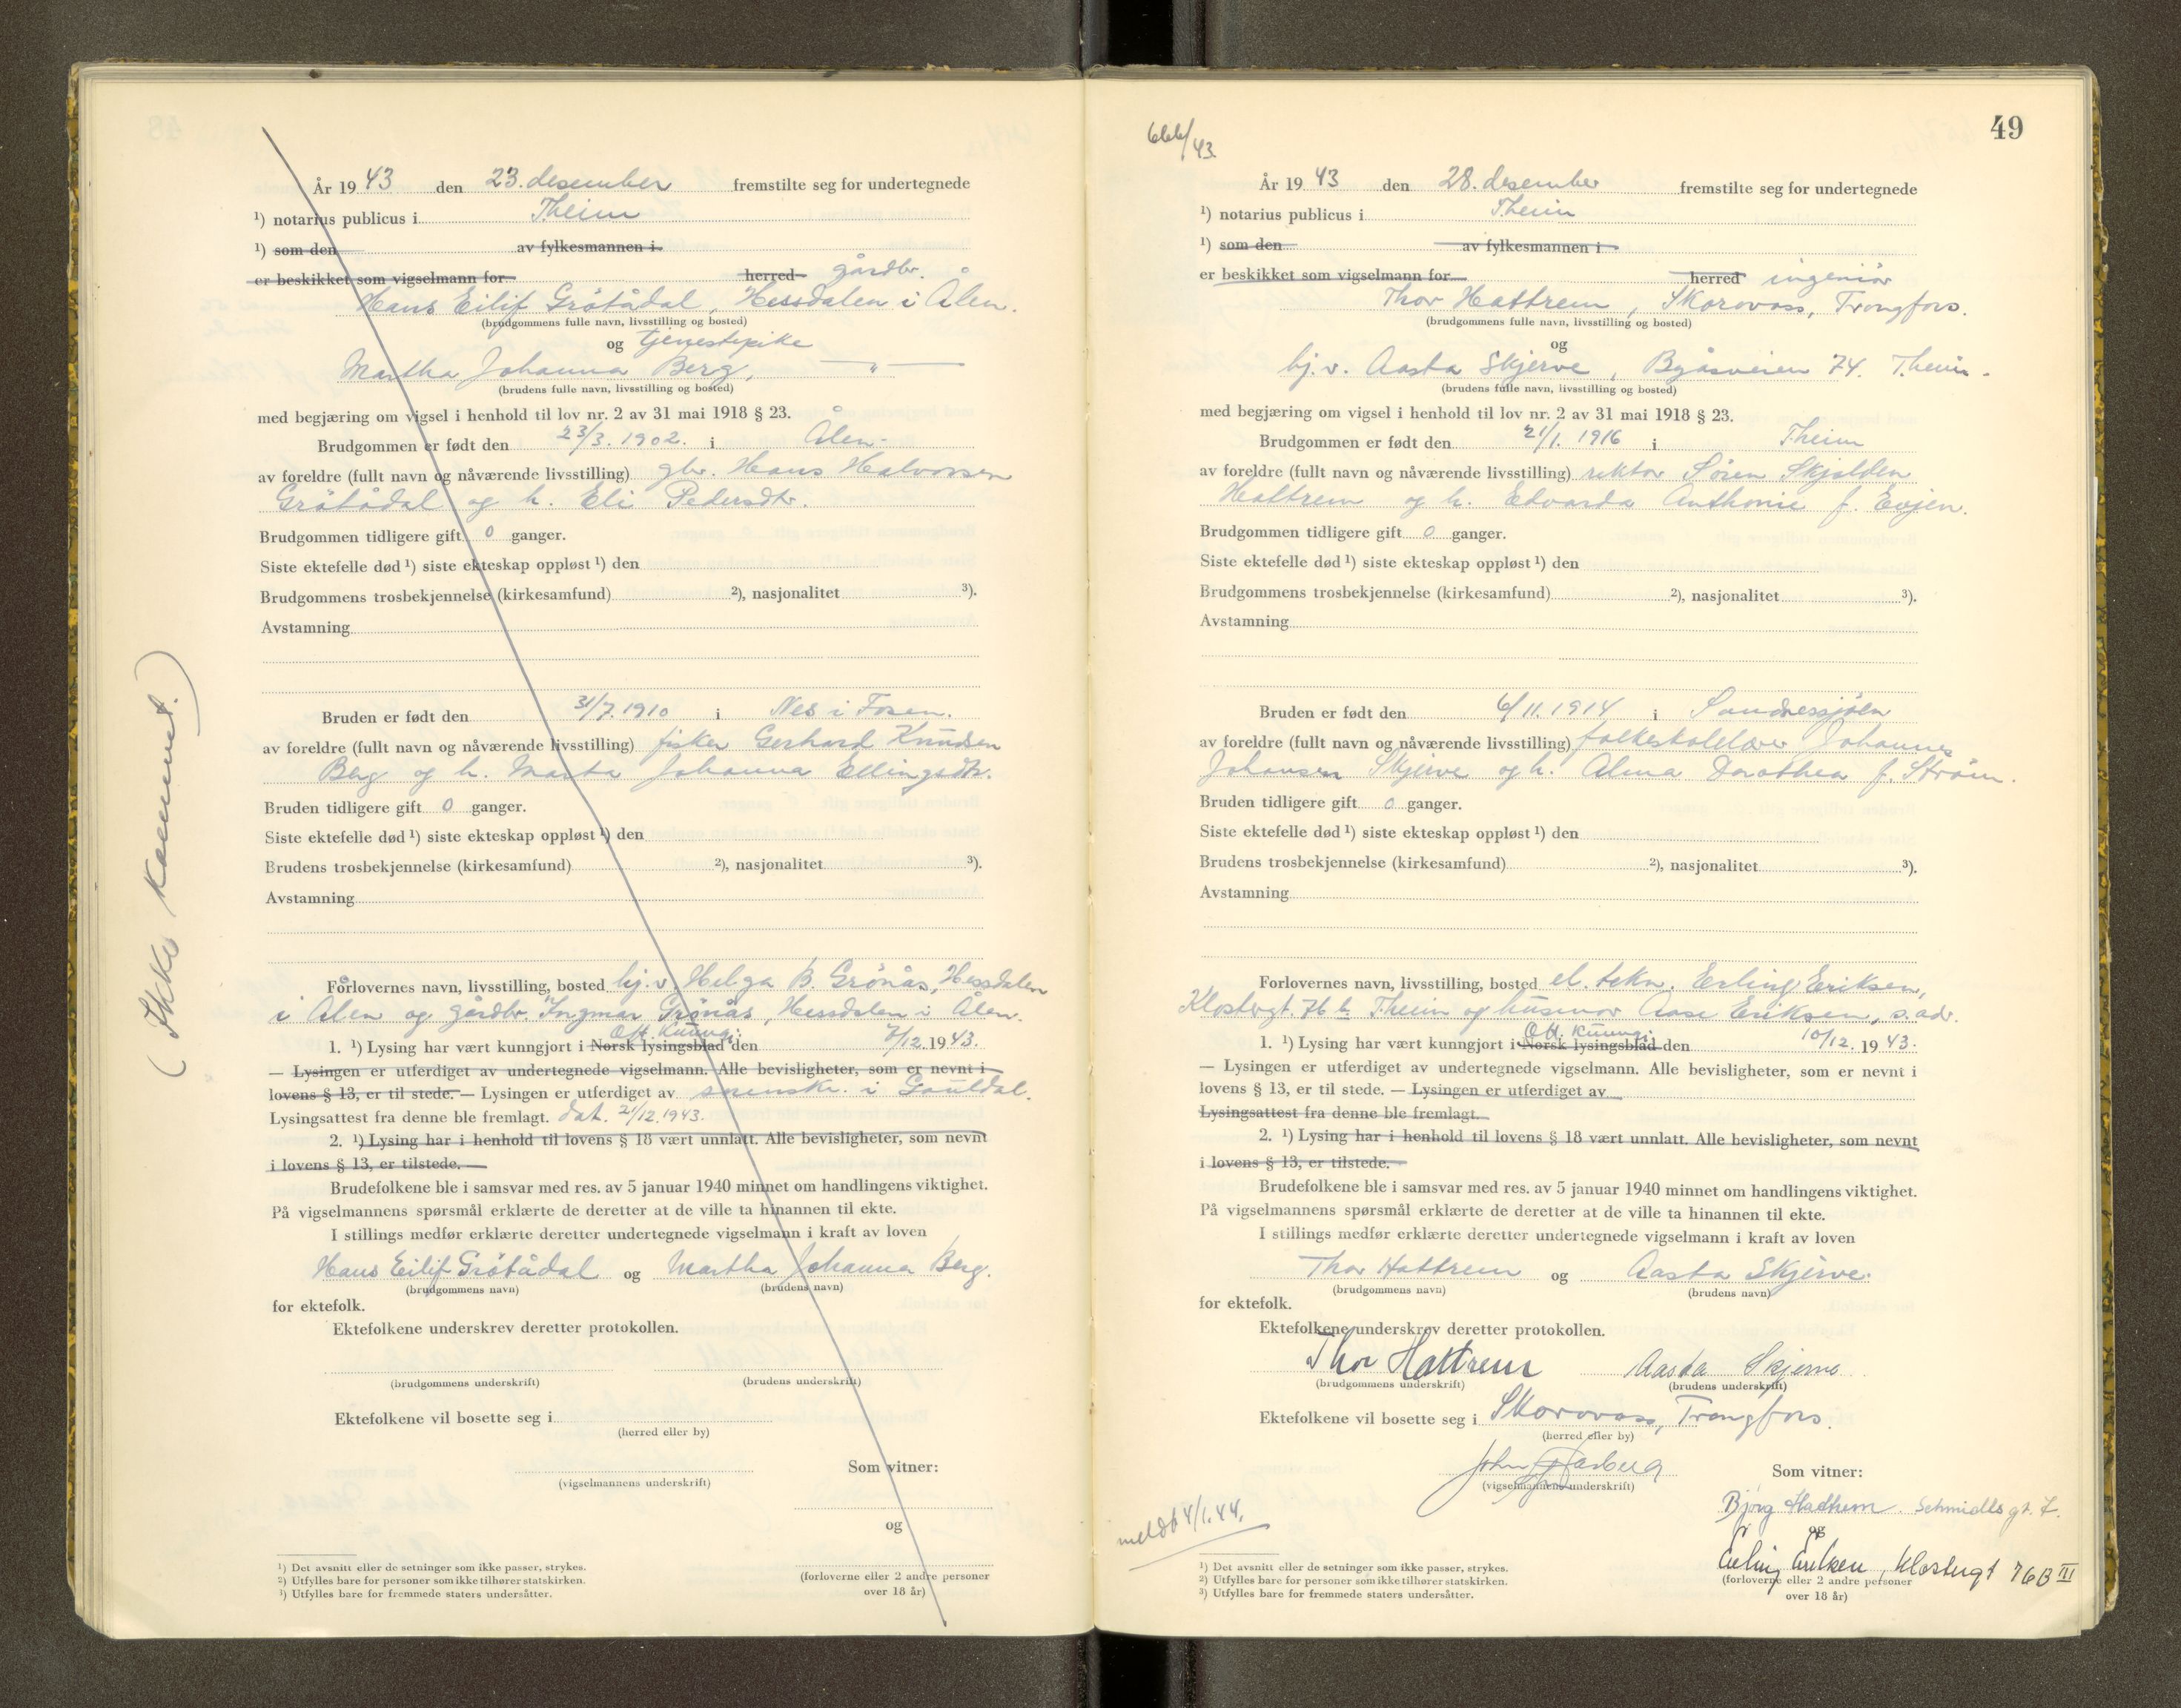 År 19 43 den 23. desember fremstilte seg for undertegnede
¹) notarius publicus i Theim
¹) som den av fylkesmannen i
er beskikket som vigselmann for herred gårdbr.
Hans Eilif Grötådal, Hessdalen i Ålen.
(brudgommens fulle navn, livsstilling og bosted)
og tjenestepike
Martha Johanna Berg, — " —
(brudens fulle navn, livsstilling og bosted)
med begjæring om vigsel i henhold til lov nr. 2 av 31 mai 1918 § 23.
Brudgommen er født den 23/3. 1902. i Ålen
av foreldre (fullt navn og nåværende livsstilling) gbr. Hans Halvorsen
Grötådal og h. Eli Pedersdtr.
Brudgommen tidligere gift 0 ganger.
Siste ektefelle død ¹) siste ekteskap oppløst ¹) den
Brudgommens trosbekjennelse (kirkesamfund) ²), nasjonalitet ³).
Avstamning
Bruden er født den 31/7. 1910 i Nes i Fosen.
av foreldre (fullt navn og nåværende livsstilling) fisker Gerhard Knudsen
Berg og h. Marta Johanna Ellingsdtr.
Bruden tidligere gift 0 ganger.
Siste ektefelle død ¹) siste ekteskap oppløst ¹) den
Brudens trosbekjennelse (kirkesamfund) ²), nasjonalitet ³).
Avstamning
Forlovernes navn, livsstilling, bosted hj.v. Helga B. Grönås, Hessdalen
i Ålen og gårdbr. Ingmar Grönås, Hessdalen i Ålen.
Off. Kunngj.
1. ¹) Lysing har vært kunngjort i Norsk lysingsblad den 7/12. 19 43.
— Lysingen er utferdiget av undertegnede vigselmann. Alle bevisligheter, som er nevnt i
lovens § 13, er til stede. — Lysingen er utferdiget av sorenskr. i Gauldal.
Lysingsattest fra denne ble fremlagt. dat. 21/12. 1943.
2. ¹) Lysing har i henhold til lovens § 18 vært unnlatt. Alle bevisligheter, som nevnt
i lovens § 13, er tilstede.
Brudefolkene ble i samsvar med res. av 5 januar 1940 minnet om handlingens viktighet.
På vigselmannens spørsmål erklærte de deretter at de ville ta hinannen til ekte.
I stillings medfør erklærte deretter undertegnede vigselmann i kraft av loven
Hans Eilif Grötådal og Martha Johanna Berg.
(brudgommens navn) (brudens navn)
for ektefolk.
Ektefolkene underskrev deretter protokollen.
(brudgommens underskrift) (brudens underskrift)
Ektefolkene vil bosette seg i
(herred eller by)
Som vitner:
(vigselmannens underskrift)
og
¹) Det avsnitt eller de setninger som ikke passer, strykes.
²) Utfylles bare for personer som ikke tilhører statskirken.
³) Utfylles bare for fremmede staters undersåtter.
(forloverne eller 2 andre personer
over 18 år)
(Ikke kommet.)
49
666/43
År 19 43 den 28. desember fremstilte seg for undertegnede
¹) notarius publicus i Theim
¹) som den av fylkesmannen i
er beskikket som vigselmann for herred ingeniør
Thor Hattrem, Skorovass, Trongfors.
(brudgommens fulle navn, livsstilling og bosted)
og
hj.v. Aasta Skjerve, Byåsveien 74. Theim.
(brudens fulle navn, livsstilling og bosted)
med begjæring om vigsel i henhold til lov nr. 2 av 31 mai 1918 § 23.
Brudgommen er født den 21/1. 1916 i Theim
av foreldre (fullt navn og nåværende livsstilling) rektor Sören Skjolden
Hattrem og h. Edvarda Anthonie f. Evjen.
Brudgommen tidligere gift 0 ganger.
Siste ektefelle død ¹) siste ekteskap oppløst ¹) den
Brudgommens trosbekjennelse (kirkesamfund) ²), nasjonalitet ³).
Avstamning
Bruden er født den 6/11. 1914 i Sandnessjöen
av foreldre (fullt navn og nåværende livsstilling) folkeskolelærer Johannes
Johansen Skjerve og h. Alma Dorothea f. Ström.
Bruden tidligere gift 0 ganger.
Siste ektefelle død ¹) siste ekteskap oppløst ¹) den
Brudens trosbekjennelse (kirkesamfund) ²), nasjonalitet ³).
Avstamning
Forlovernes navn, livsstilling, bosted el. tekn. Erling Eriksen,
Klostergt. 76 b Theim og husmor Aase Eriksen, s. adr.
Off. Kunngj.
1. ¹) Lysing har vært kunngjort i Norsk lysingsblad den 10/12. 19 43.
— Lysingen er utferdiget av undertegnede vigselmann. Alle bevisligheter, som er nevnt i
lovens § 13, er til stede. — Lysingen er utferdiget av
Lysingsattest fra denne ble fremlagt.
2. ¹) Lysing har i henhold til lovens § 18 vært unnlatt. Alle bevisligheter, som nevnt
i lovens § 13, er tilstede.
Brudefolkene ble i samsvar med res. av 5 januar 1940 minnet om handlingens viktighet.
På vigselmannens spørsmål erklærte de deretter at de ville ta hinannen til ekte.
I stillings medfør erklærte deretter undertegnede vigselmann i kraft av loven
Thor Hattrem og Aasta Skjerve.
(brudgommens navn) (brudens navn)
for ektefolk.
Ektefolkene underskrev deretter protokollen.
Thor Hattrem Aasta Skjerve
(brudgommens underskrift) (brudens underskrift)
Ektefolkene vil bosette seg i Skorovass, Trongfors.
(herred eller by)
John
(vigselmannens underskrift)
Som vitner:
Bjørg Hattrem. Schmidts gt. 7.
og
Erling Eriksen, Klostergt 76B III
(forloverne eller 2 andre personer
over 18 år)
meldt 4/1.44.
¹) Det avsnitt eller de setninger som ikke passer, strykes.
²) Utfylles bare for personer som ikke tilhører statskirken.
³) Utfylles bare for fremmede staters undersåtter.